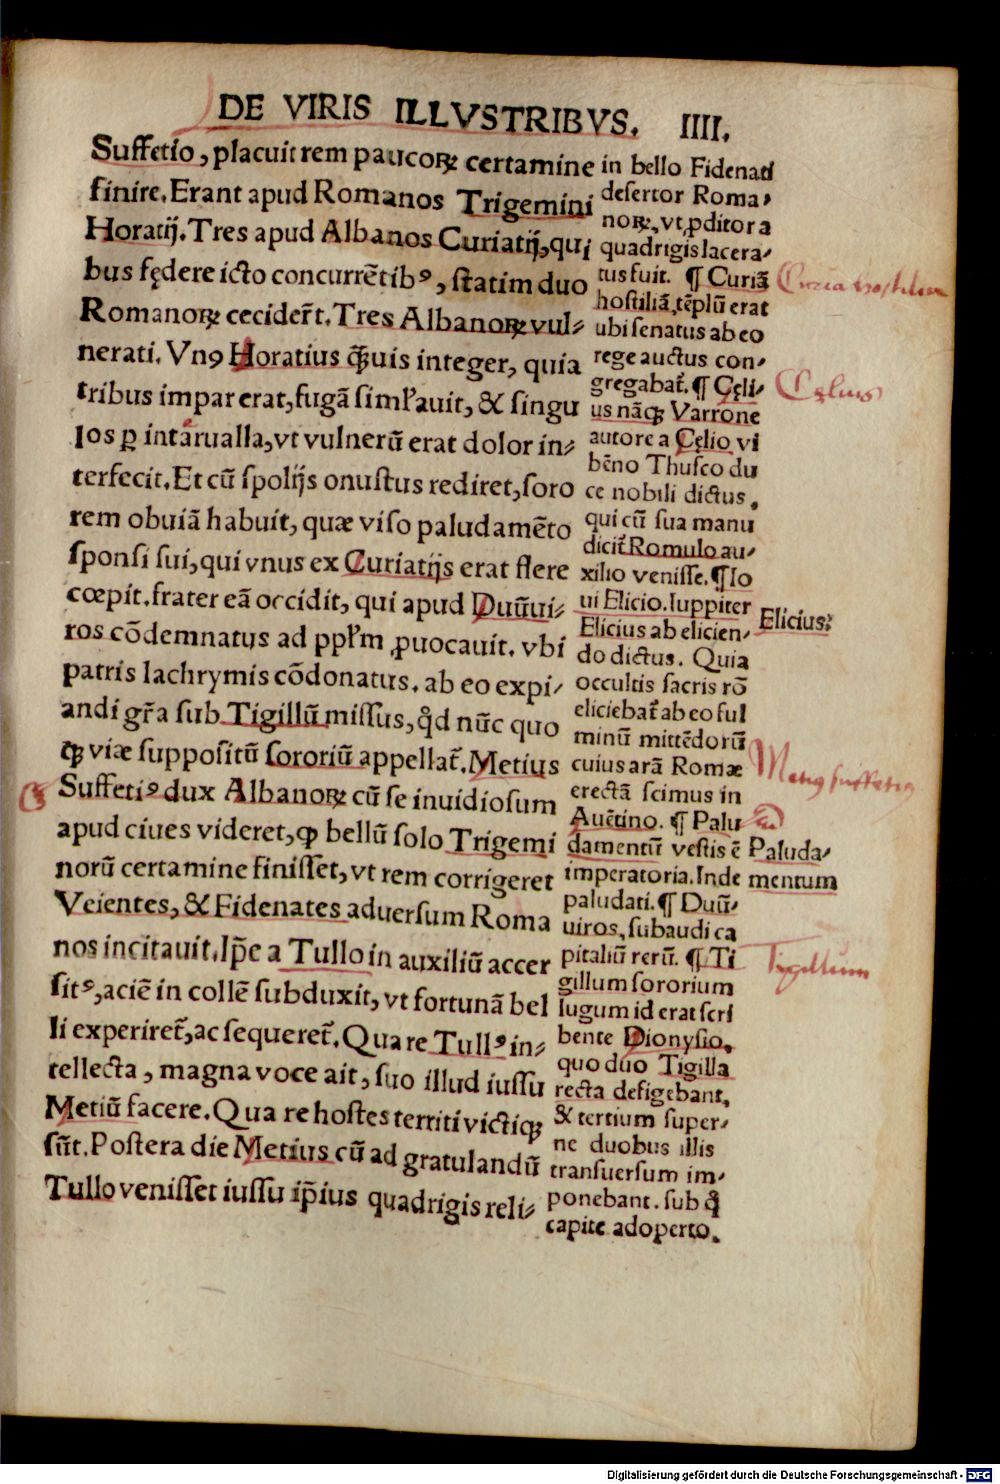 DE VIRIS ILLVSTRIBVS. IIII.
Suffetio, placuit rem paucoꝝ certamine
finire. Erant apud Romanos Trigemini
Horatij. Tres apud Albanos Curiatij, qui
bus fędere icto concurrētibꝰ, statim duo
Romanoꝝ cecider̄t. Tres Albanoꝝ vul⸗
nerati. Vnꝰ Horatius q̄uis integer, quia
tribus impar erat, fugā simŀauit, & singu
los ꝑ interualla, vt vulnerū erat dolor in⸗
terfecit. Et cū spolijs onustus rediret, soro
rem obuiā habuit, quæ viso paludamēto
sponsi sui, qui vnus ex Curiatijs erat flere
cœpit. frater eā occidit, qui apud Duūui⸗
ros cōdemnatus ad ppŀm ꝓuocauit. vbi
patris lachrymis cōdonatus. ab eo expi⸗
andi gr̄a sub Tigillū missus, qd̛ nūc quo
qꝫ viæ suppositū sororiū appellat̄. Metius
Suffetiꝰ dux Albanoꝝ cū se inuidiosum
apud ciues videret, ꝙ bellū solo Trigemi
norū certamine finisset, vt rem corrigeret
Veientes, & Fidenates aduersum Roma
nos incitauit. Ip̄e a Tullo in auxiliū accer
sitꝰ, aciē in collē subduxit, vt fortunā bel
li experiret̄, ac sequeret̄. Qua re Tullꝰ in⸗
tellecta, magna voce ait, suo illud iussu
Metiū facere. Qua re hostes territi victiqꝫ
sūt. Postera die Metius cū ad gratulandū
Tullo venisset iussu ip̄ius quadrigis reli⸗
in bello Fidenati
desertor Roma⸗
noꝝ, vt ꝓditor a
quadrigis lacera⸗
tus fuit. ¶ Curiā
hostiliā, tēplū erat
vbi senatus ab eo
rege auctus con⸗
gregabat̄. ¶ Cęli⸗
us nāqꝫ Varrone
autore a Cęlio vi
bēno Thusco du
ce nobili dictus.
qui cū sua manu
dicit̄ Romulo au⸗
xilio venisse. ¶ Io
ui Elicio. Iuppiter
Elicius ab elicien⸗
do dictus. Quia
occultis sacris rō
eliciebat̄ ab eo ful
minū mittēdorū
cuius arā Romæ
erectā scimus in
Auētino. ¶ Palu
damentū vestis ē
imperatoria. Inde
paludati. ¶ Duū⸗
uiros, subaudi ca
pitaliū rerū. ¶ Ti
gillum sororium
iugum id erat scri
bente Dionysio,
quo duo Tigilla
recta defigebant,
& tertium super⸗
ne duobus illis
transuersum im⸗
ponebant. sub q̄
capite adoperto.
Curia hostilia
Cęlius
Elicius:
Metius suffetius
Paluda⸗
mentum
Tigillum
Digitalisierung gefördert durch die Deutsche Forschungsgemeinschaft - DFG